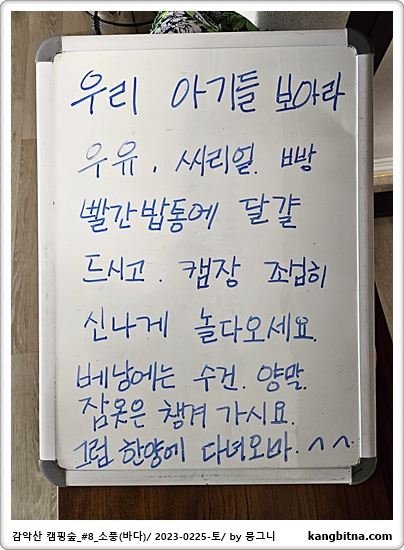 우리 아기들 보아라
우유, 씨리얼. 빵
빨간밥통에 달걀
드시고. 캠장 조섭히
신나게 놀다오세요.
베낭에는 수건. 양말.
잠옷은 챙겨 가시요.
그럼 한양에 다녀오마. ^^
감악산 캠핑숲_#8_소풍(바다)/ 2023-0225-토/ by 뭉그니
kangbitna.com